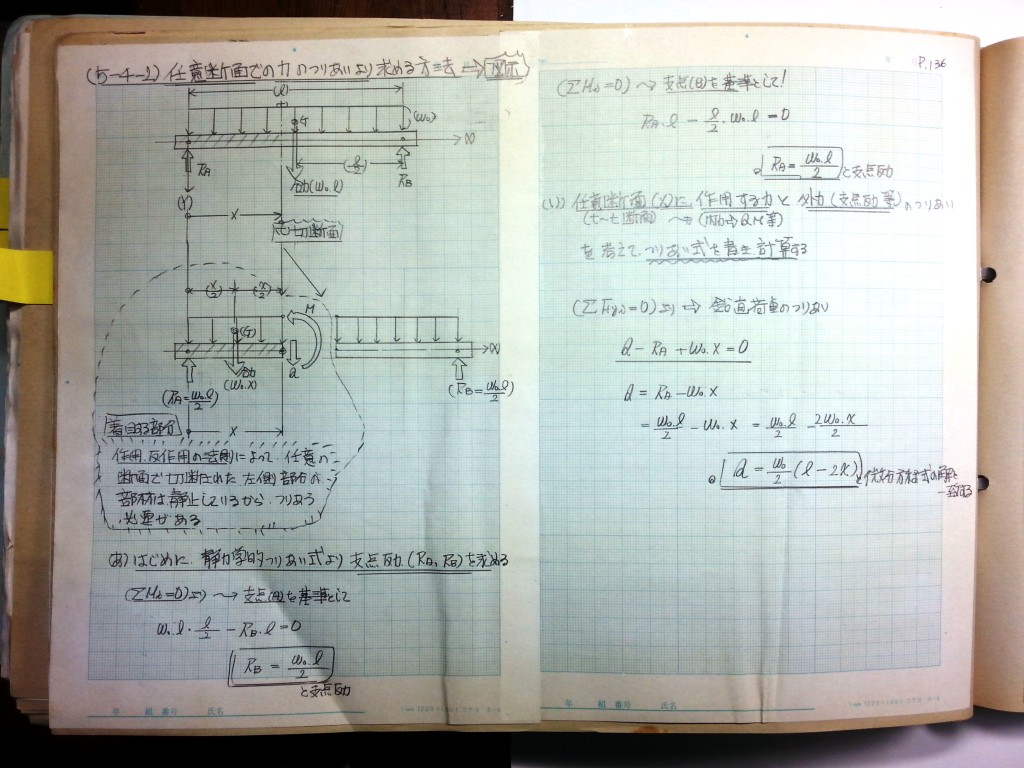 (5-4-2) 任意断面での力のつりあいより求める方法 ⇒ 図示
(l)
(w₀)
G
x
RA
(l/2)
RB
合力(w₀.l)
(Y)
x
七七切断面
(x/2) (x/2)
M
(G)
x
合力
(w₀.x)
Q
(RA=w₀.l/2)
(RB=w₀.l/2)
着目する部分
x
作用.反作用の法則によって.任意の
断面で切断された左側部分の
部材は静止しているから.つりあう
必要がある
(あ) はじめに.静力学的つりあい式より支点反力.(RA, RB)を求める
(ΣMi=0)より 〜→ 支点(A)を基準として
w₀.l.l/2 - RB.l = 0
RB = w₀.l/2
と支点反力
P.136
(ΣMi=0) 〜→ 支点(B)を基準として!
RA.l - l/2.w₀.l = 0
RA = w₀.l/2 と支点反力
(い) 任意断面(x)に 作用する力と 外力(支点反力等)のつりあい
を考えて.つりあい式を書き計算する
(ΣFyi=0)より ⇒ 鉛直荷重のつりあい
Q - RA + w₀.x = 0
Q = RA - w₀.x
= w₀.l/2 - w₀.x = w₀.l/2 - 2w₀.x/2
Q = w₀/2 (l - 2x)
一致する
年 組 番号 氏名
年 組 番号 氏名